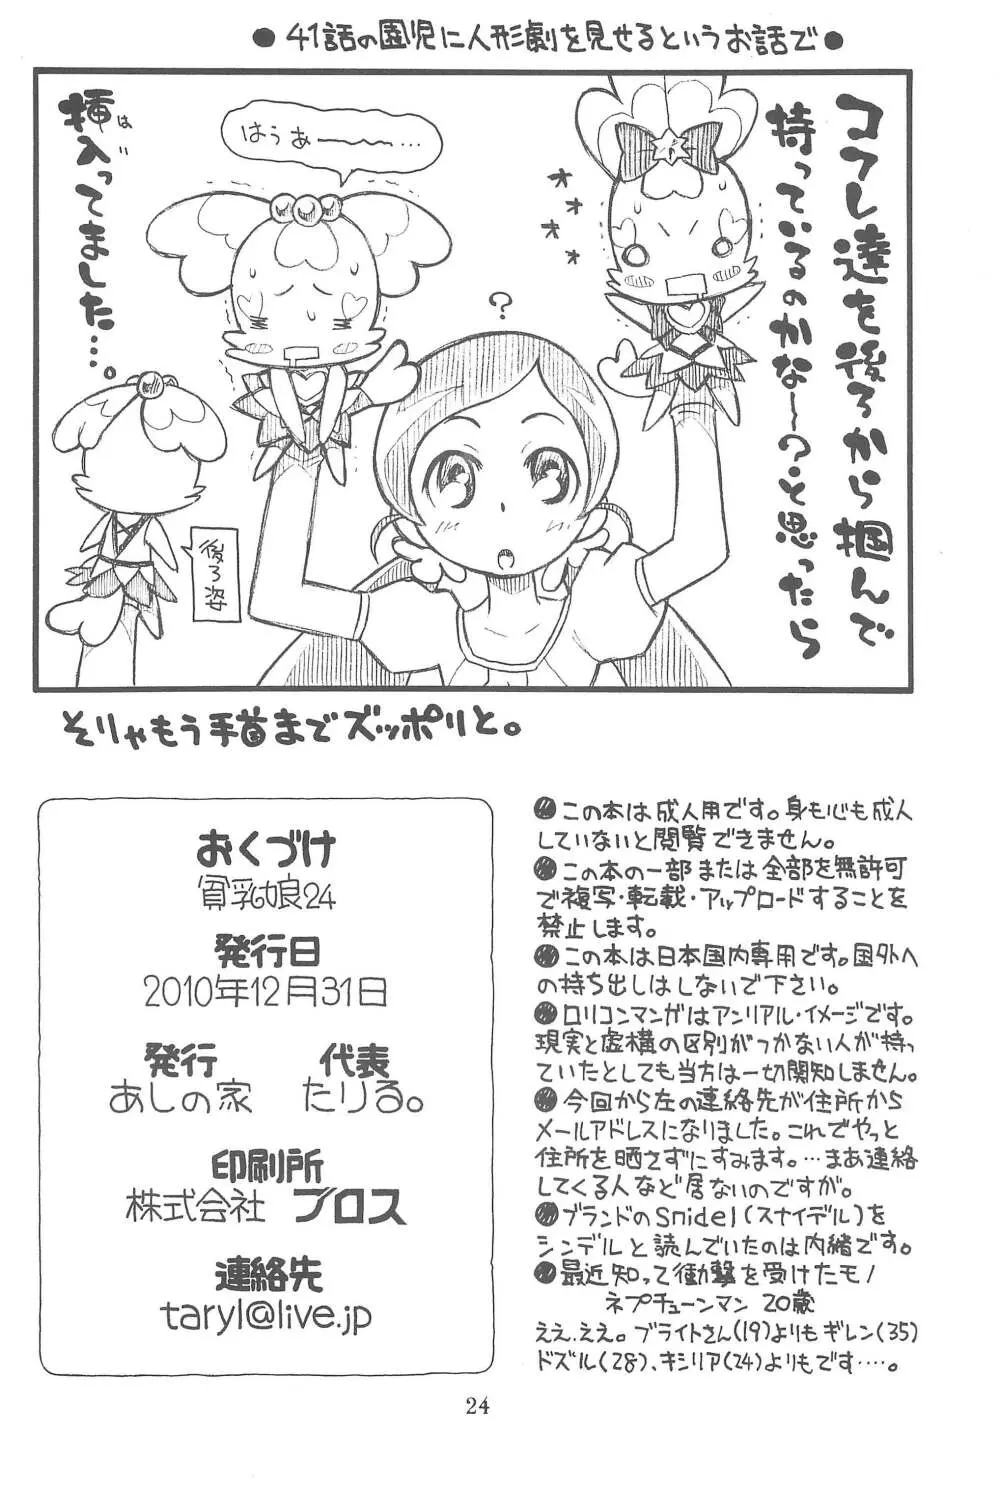 ●41話の園児に人形劇を見せるというお話で●
コフレ達を後ろから掴んで
持っているのかな～?と思ったら
はうあ～～～…
?
挿入ってました…。
はい
後ろ姿
そりゃもう手首までズッポリと。
おくづけ
貧乳娘24
発行日
2010年12月31日
発行 代表
あしの家 たりる。
印刷所
株式会社 ブロス
連絡先
taryl@live.jp
●この本は成人用です。身も心も成人
していないと閲覧できません。
●この本の一部または全部を無許可
で複写・転載・アップロードすることを
禁止します。
●この本は日本国内専用です。国外へ
の持ち出しはしないで下さい。
●ロリコンマンガはアンリアル・イメージです。
現実と虚構の区別がつかない人が持っ
ていたとしても当方は一切関知しません。
●今回から左の連絡先が住所から
メールアドレスになりました。これでやっと
住所を晒さずにすみます。…まあ連絡
してくる人など居ないのですが。
●ブランドのSnidel(スナイデル)を
シンデルと読んでいたのは内緒です。
●最近知って衝撃を受けたモノ
ネプチューンマン 20歳
ええ、ええ。ブライトさん(19)よりもギレン(35)
ドズル(28)、キシリア(24)よりもです…。
24